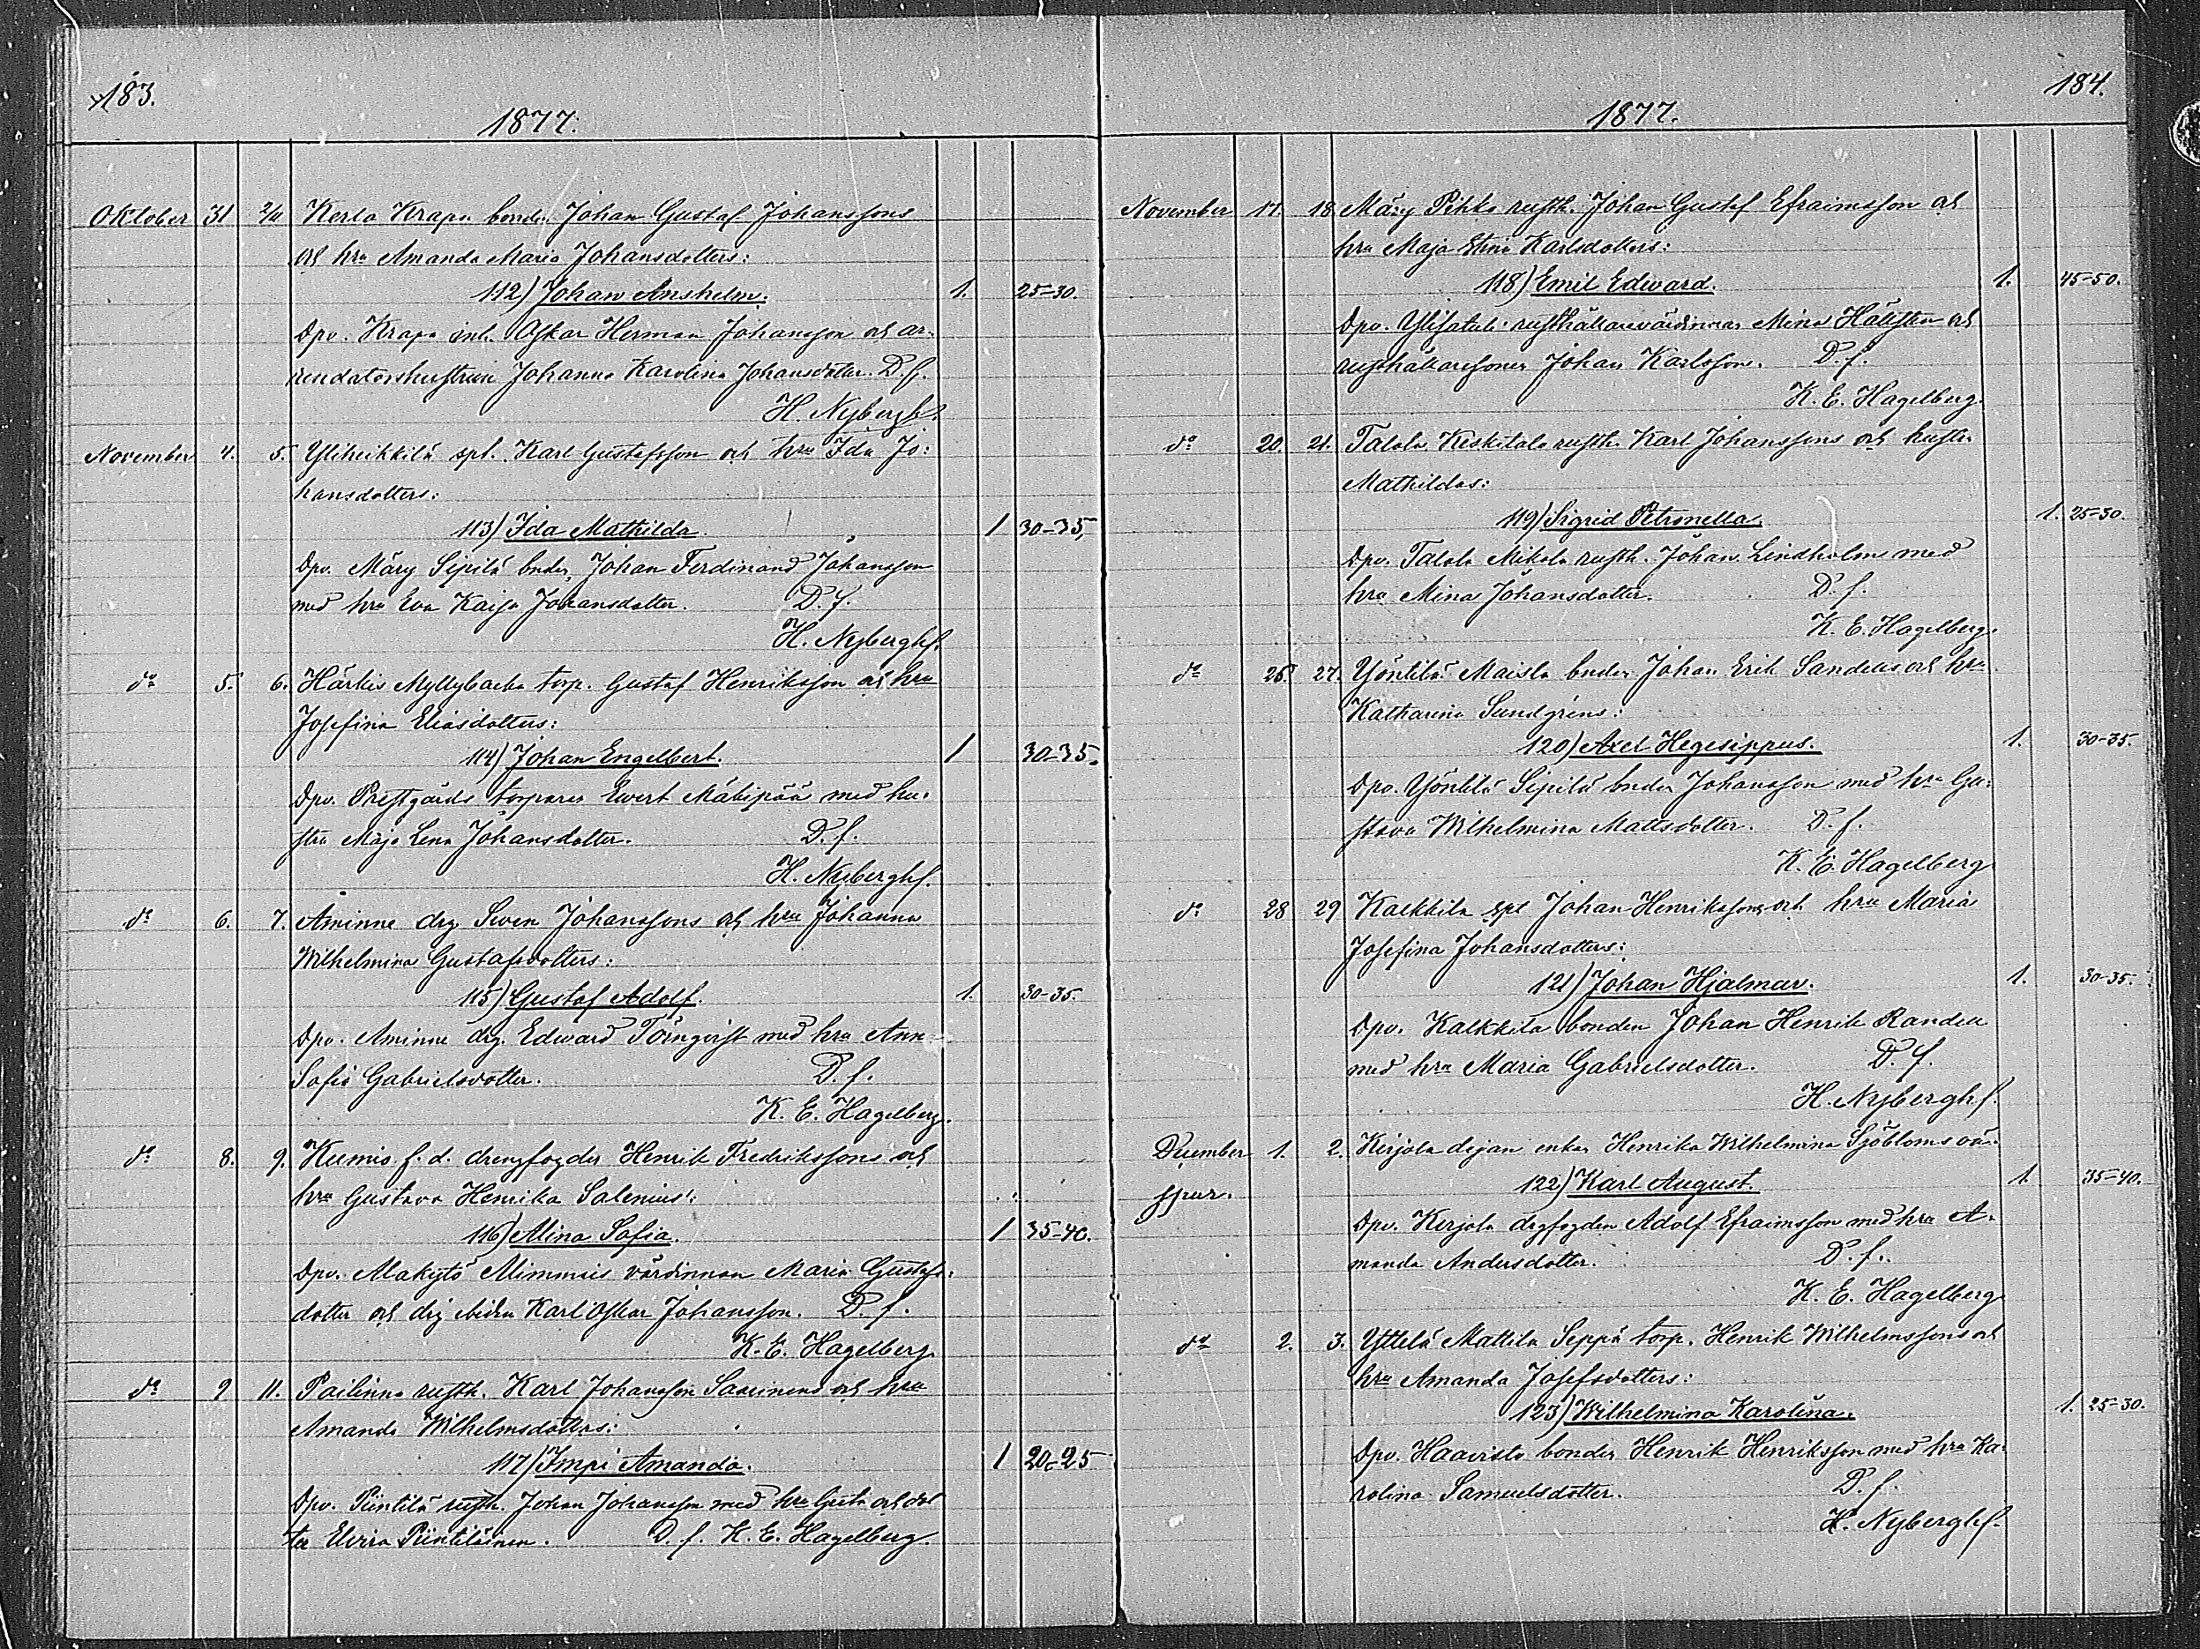 183.
1877.
Oktober 31 2/11 Kerla Krapu bonden Johan Gustaf Johanssons
och hru Amanda Maria Johansdotters:
112) Johan Anshelm. 1. 25-30.
Dpv. Krapu inh. Oskar Herman Johansson och ar-
rendatorshustrun Johanna Karolina Johansdotter. D. f.
H. Nybergh.
November 4. 5. Yliheikkilä spl. Karl Gustafsson och hru Ida Jo-
hansdotters:
113) Ida Mathilda. 1 30-35,
Dpv. Märy Sipilä bnden, Johan Ferdinand Johansson
med hru Eva Kaisa Johansdotter. D. f.
H. Nyberghf.
do 5. 6. Härkis Myllybacka torp. Gustaf Henriksson och hru
Josefina Eliasdotters:
114) Johan Engelbert. 1 30-35.
Dpv. Prestgårds torparen Evert Mäkipää med hu-
stru Maja Lena Johansdotter. D. f.
H. Nyberghf.
do 6. 7. Aminne drg Sven Johanssons och hru Johanna
Wilhelmina Gustafsdotters:
115) Gustaf Adolf. 1. 30-35.
Dpv. Aminne drg. Edward Törnqvist med hru Ann-
Sofia Gabrielsdotter. D. f.
K. E. Hagelberg.
do 8. 9. Kumio f. d. drengfogden Henrik Fredrikssons och
hru Gustava Henrika Salenius:
116) Alina Sofia. 1 35-40.
Dpv. Alakytö Mimmis värdinnan Maria Gustafs-
dotter och drg Karl Oskar Johansson. D. f.
K. E. Hagelberg.
do 9 11. Pailinna rusth. Karl Johansson Saarinens och hru
Amanda Wilhelmsdotters:
117) Impi Amanda. 1 20-25
Dpv. Piintilä rusth. Johan Johansson med hru Greta och dot
ter Elvira Piintiläinen. D. f. K. E. Hagelberg.
184.
1877.
November 17. 18 Märy Pihka rusth. Johan Gustaf Efraimsson och
hru Maja Stina Karlsdotters:
118) Emil Edward. 1. 45-50.
Dpv. rusthållarevärdinnan Mina Hällsten och
rusthållaresonen Johan Karlsson. D. f.
K. E. Hagelberg.
do 20. 21. Talola Keskitalo rusth. Karl Johanssons och hustr.
Mathildas:
119) Sigrid Petronella. 1. 25-30.
Dpv. Talola Mikola rusth. Johan Lindholm med
hru Mina Johansdotter. D. f.
K. E. Hagelberg.
do 25 27. Yöntilä Maisla bnden Johan Erik Sandells och hru
Katharina Sundgréns:
120) Axel Hegesippus. 1. 30-35.
Dpv. Yöntilä Sipilä bnden Johansson med hru Gu-
stava Wilhelmina Mattsdotter. D. f.
K. E. Hagelberg
do 28 29 Kalkkila spl Johan Henrikssons och hru Maria
Josefina Johansdotters:
121) Johan Hjalmar. 1. 30-35.
Dpv. Kalkkila bonden Johan Henrik Randell
med hru Maria Gabrielsdotter. D. f.
H. Nyberghf.
December 1. 2. Kirjola dejan enkan Henrika Wilhelmina Sjöbloms oä.
spur. 122) Karl August. 1. 35-40.
Dpv. Kerjola drgfogden Adolf Efraimsson med hru A-
manda Andersdotter. D. f.
K. E. Hagelberg
do 2. 3. Yttilä Mattila Seppä torp. Henrik Wilhelmssons och
hru Amanda Josefsdotters:
123) Wilhelmina Karolina. 1. 25-30.
Dpv. Haavisto bonden Henrik Henriksson med hru Ka-
rolina Samuelsdotter. D. f.
H. Nyberghf.